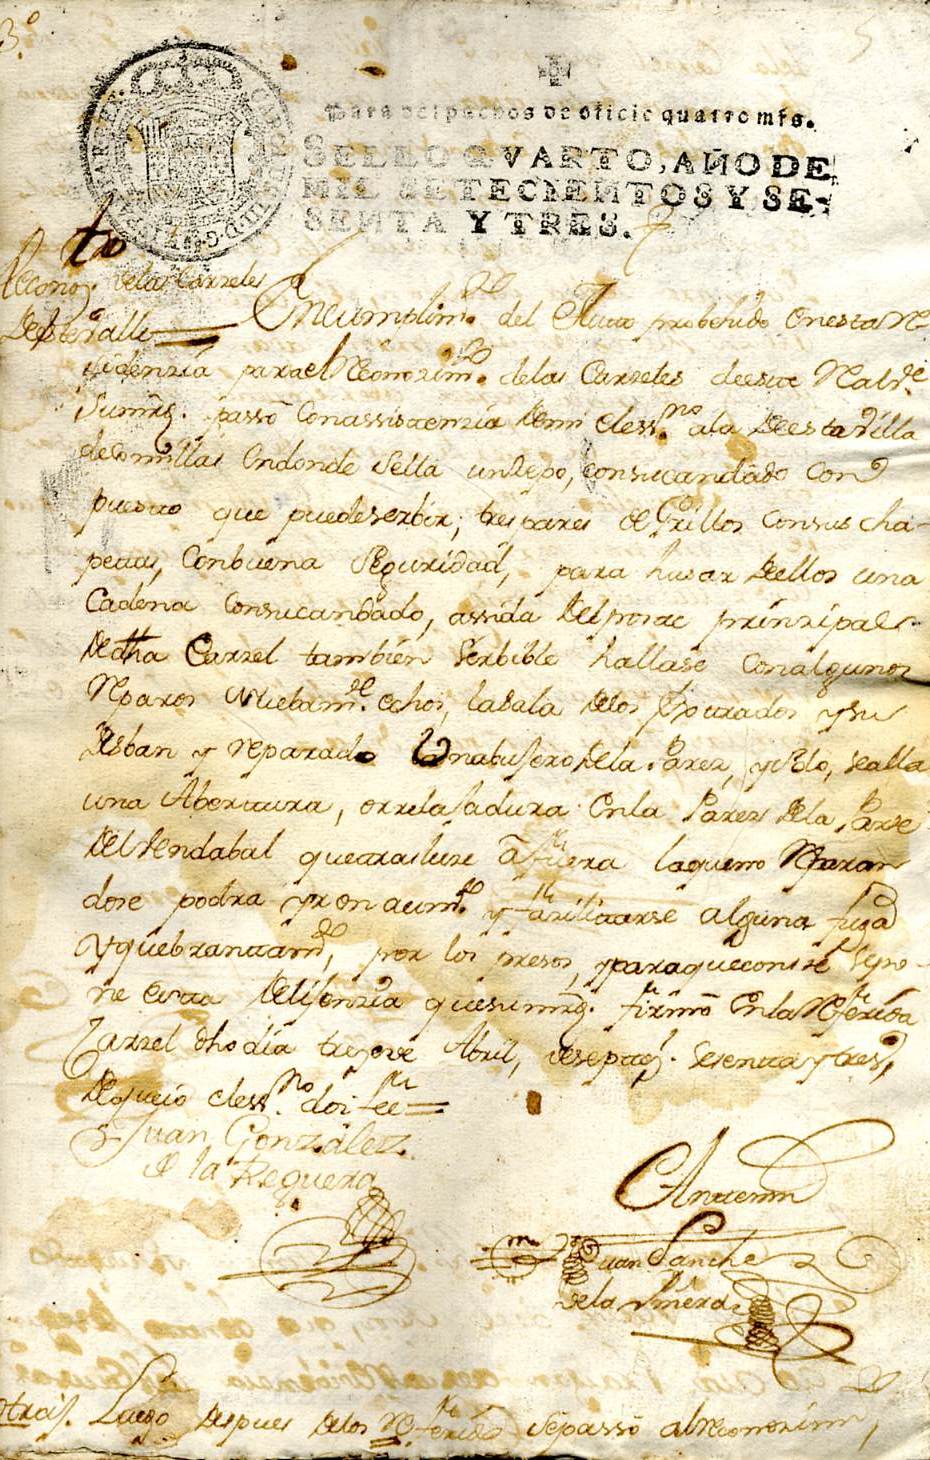 3º
5
Para despachos de oficio quatro mrs.
SELLO QVARTO, AÑO DE
MIL SETECIENTOS Y SE-
SENTA Y TRES.
to
Recono. delas Carzeles
deeste Valle
En cumplimto. del Auto probehido enesta Re
sidenzia parael Reconozimto. delas Carzeles deeste Rl. Valle
Sumrd. passó Conassistenzia demi elessno. ala deesta Villa
deComillas endonde sella unzepo, consucandado Com
puesto que puedeserbir; tres pares de Grillos Consus cha-
petas, Conbuena seguridad, para husar dellos una
Cadena Consucandado, assida del poste prinzipal
dedha Carzel tambien serbible hallase Conalgunos
Reparos Nuebamte. echos, lasala delos Ahorados y su
desban y reparado dela Parez, y solo, sealla
una Abertura, orrelasadura enla Parez dela Parte
delVendabal quetrasluze afuera laqueno Reparan
dose podra yr en aumto. y fazilitarse alguna fuga
y quebrantamto, por los presos, yparaqueconste sepo-
ne esta delijenzia quesumrd. firmó Enla Referida
Carzel dho dia treze de Abril, desetezs. sesenta y tres,
dequeio elessno. doi fee=
Juan Gonzalez
de la Reguera
Antemi
Juan Sanchez
dela
Otrosi. Luego despues delos Referido sepassó alReconozim